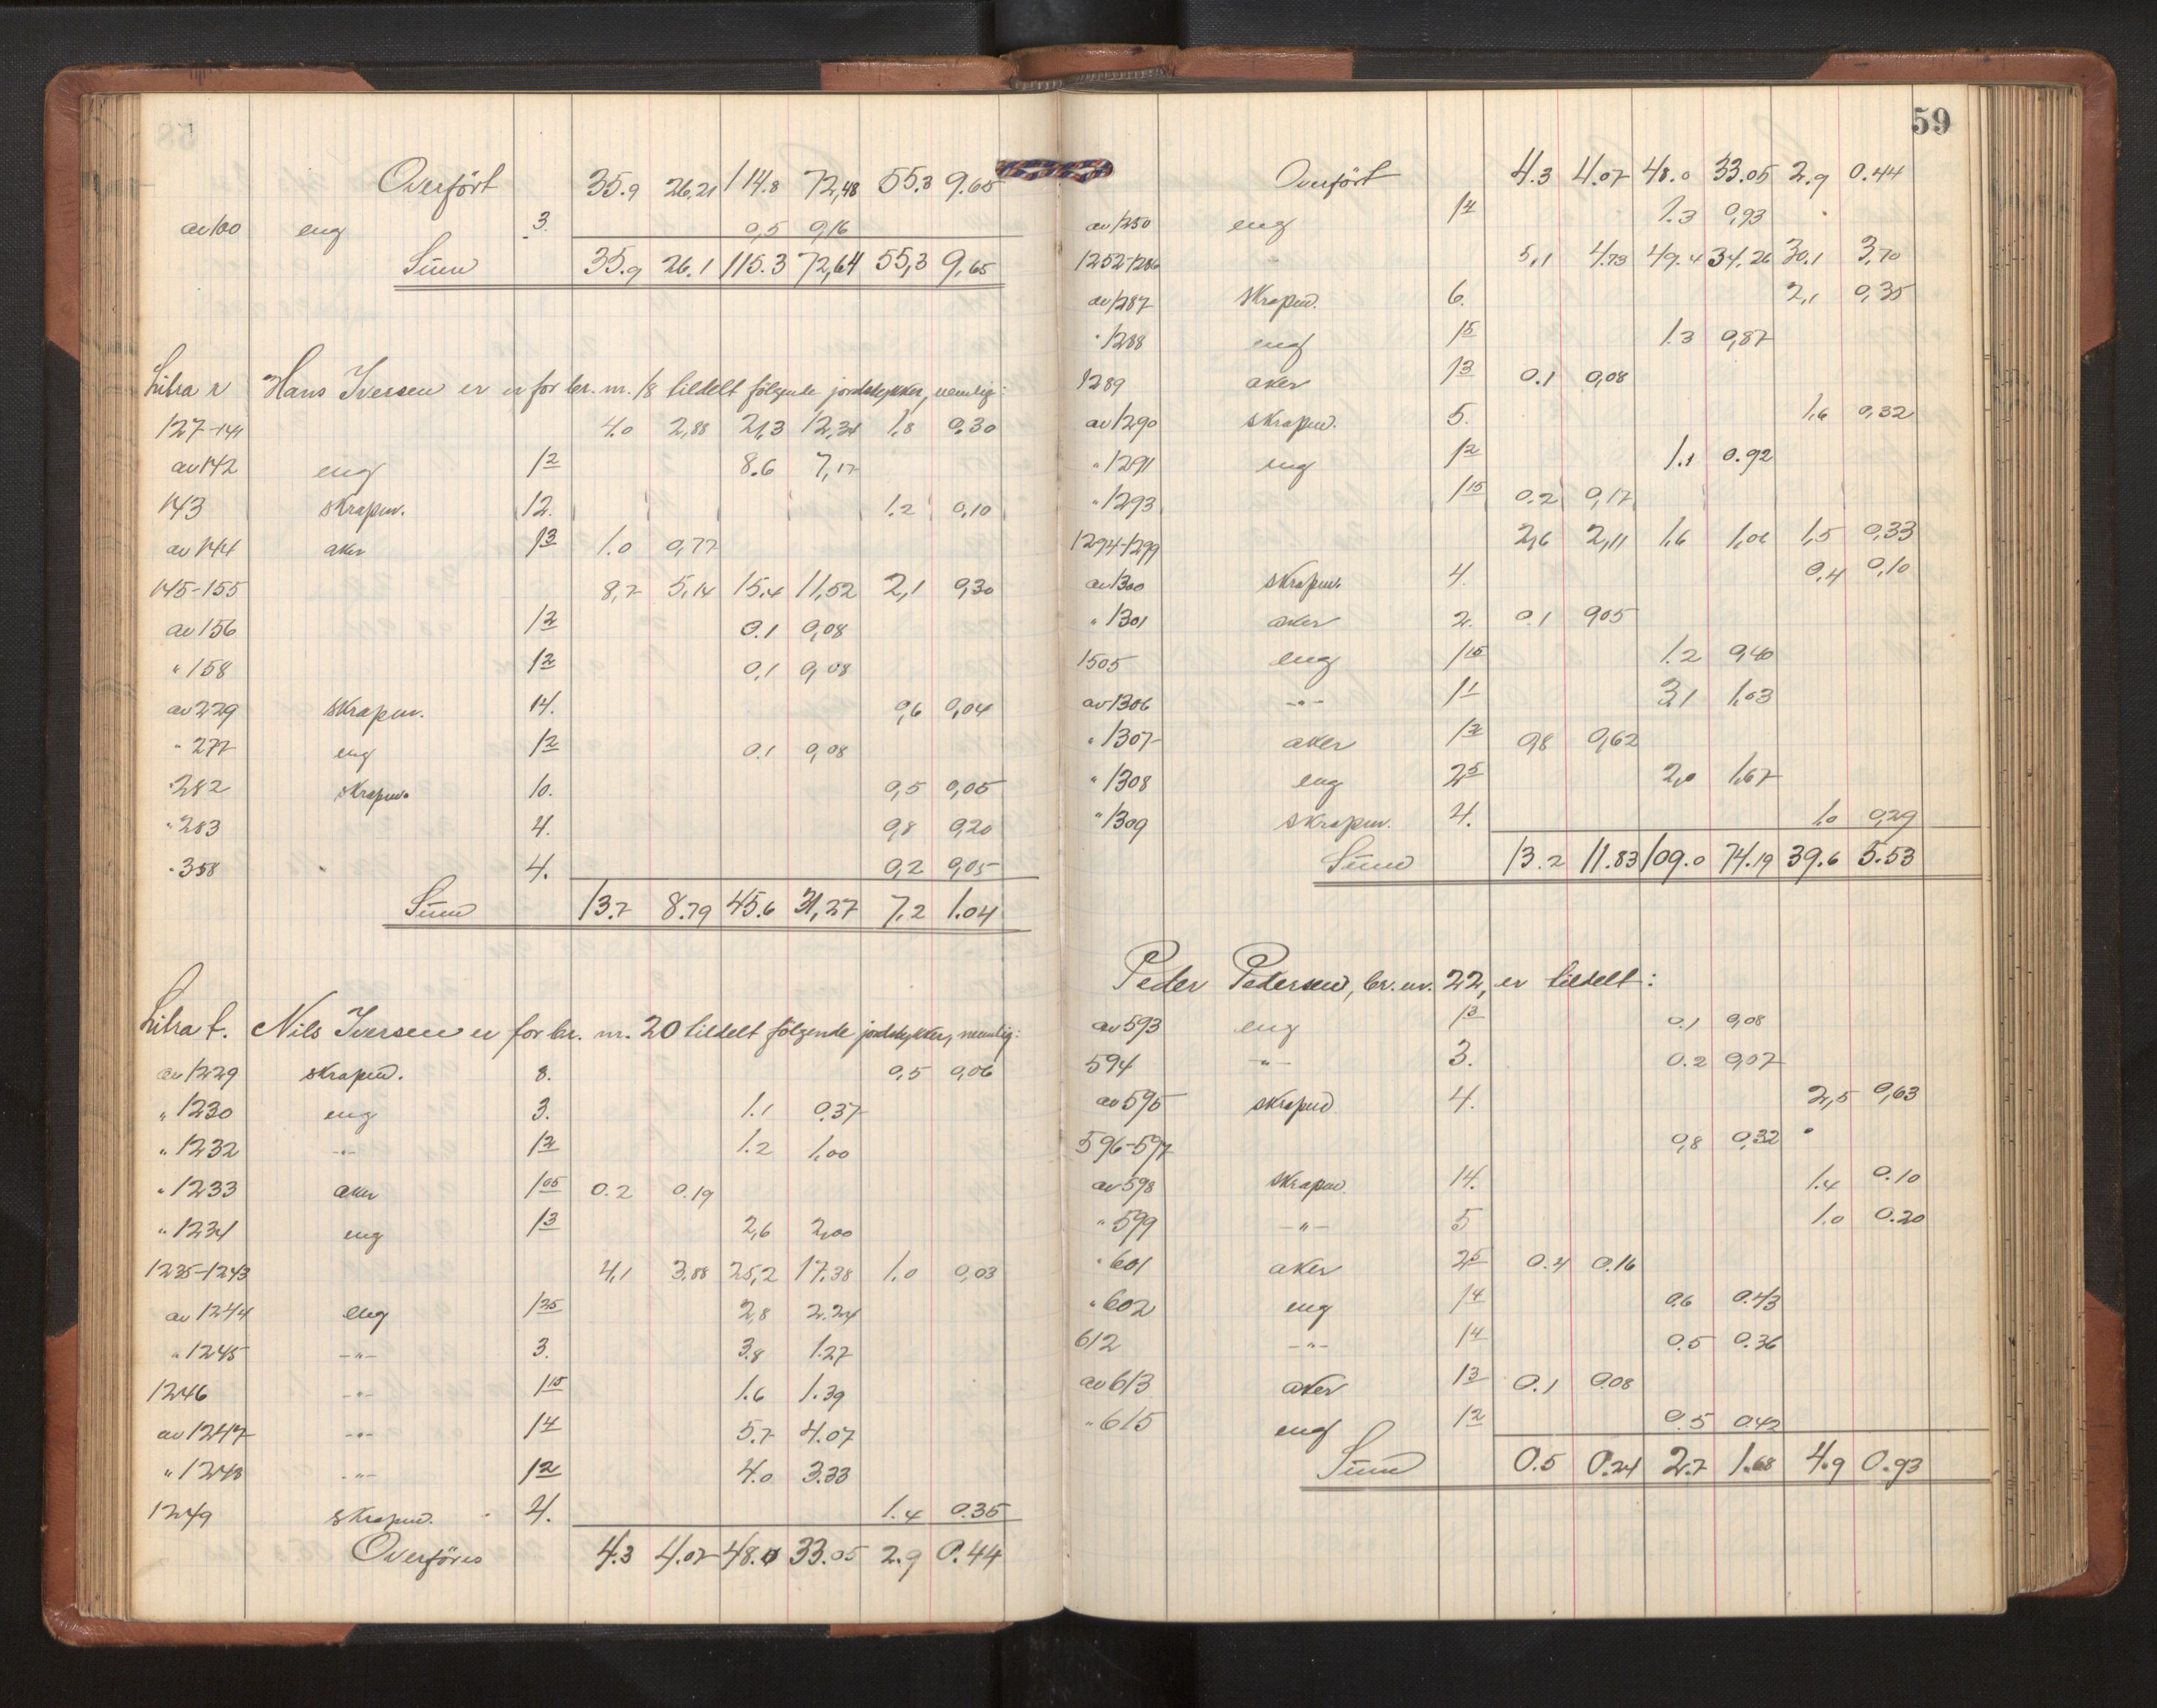 Overført 35.9 26,21 114.8 72,48 55,3 9.65
av 100 eng 3. 0,5 0,16
Sum 35.9 26.1 115.3 72,64 55,3 9,65
Litra r Hans Iversen er for br. nr. 18 tildelt følgende jordstykker, nemlig:
127-141 4.0 2,88 21,3 12,34 1,8 0,30
av 142 eng 1 2 8.6 7,17
143 skrapm. 12. 1.2 0,10
av 144 aker 1 3 1.0 0,77
145-155 8,7 5,14 15,4 11,52 2,1 0,30
av 156 1 2 0.1 0,08
" 158 1 2 0,1 0,08
av 229 skrapm. 14. 0,6 0,04
" 277 eng 1 2 0.1 0,08
" 282 skrapm. 10. 0,5 0,05
" 283 4. 0,8 0,20
" 358 4. 0,2 0,05
Sum 13.7 8.79 45.6 31,27 7.2 1.04
Litra t. Nils Iversen er for br. nr. 20 tildelt følgende jordstykker, nemlig:
av 1229 skrapm. 8. 0,5 0,06
" 1230 eng 3. 1.1 0.37
" 1232 -"- 1 2 1.2 1,00
" 1233 aker 1 05 0.2 0.19
" 1234 eng 1 3 2,6 2,00
1235-1243 4,1 3.88 25,2 17.38 1.0 0,03
av 1244 eng 1 25 2,8 2.24
" 1245 -"- 3. 3.8 1.27
1246 -"- 1 15 1.6 1.39
av 1247 -"- 1 4 5.7 4.07
" 1248 -"- 1 2 4.0 3.33
1249 skrapm. 4. 1.4 0.35
Overføres 4.3 4.07 48.0 33.05 2.9 0.44
59
Overført 4.3 4.07 48.0 33.05 2.9 0.44
av 1250 eng 1 4 1.3 0,93
1252-1286 5,1 4.73 49.4 34.26 30.1 3,70
av 1287 skrapm. 6. 2,1 0,35
" 1288 eng 1 5 1.3 0,87
1289 aker 1 3 0.1 0,08
av 1290 skrapm. 5. 1,6 0,32
" 1291 eng 1 2 1.1 0.92
" 1293 1 15 0.2 0,17
1294-1299 2,6 2,11 1,6 1,06 1,5 0,33
av 1300 skrapm. 4. 0,4 0,10
" 1301 aker 2. 0.1 0,05
1505 eng 1 15 1.2 0,40
av 1306 -"- 1 1 3,1 1,03
" 1307 aker 1 3 0,8 0,62
" 1308 eng 2 5 2,0 1,67
" 1309 skrapm. 4. 1,0 0,29
Sum 13.2 11.83 109.0 74.19 39.6 5.53
Peder Pedersen, br. nr. 22, er tildelt:
av 593 eng 1 3 0.1 0,08
594 -"- 3. 0.2 0,07
av 595 skrapm 4. 2,5 0,63
596-597 0,8 0,32
av 598 skrapm. 14. 1.4 0.10
" 599 -"- 5 1.0 0.20
" 601 aker 2 5 0.4 0.16
" 602 eng 1 4 0.6 0.43
612 -"- 1 4 0.5 0.36
av 613 aker 1 3 0.1 0.08
" 615 eng 1 2 0.5 0.42
Sum 0.5 0.24 2.7 1.68 4.9 0.93